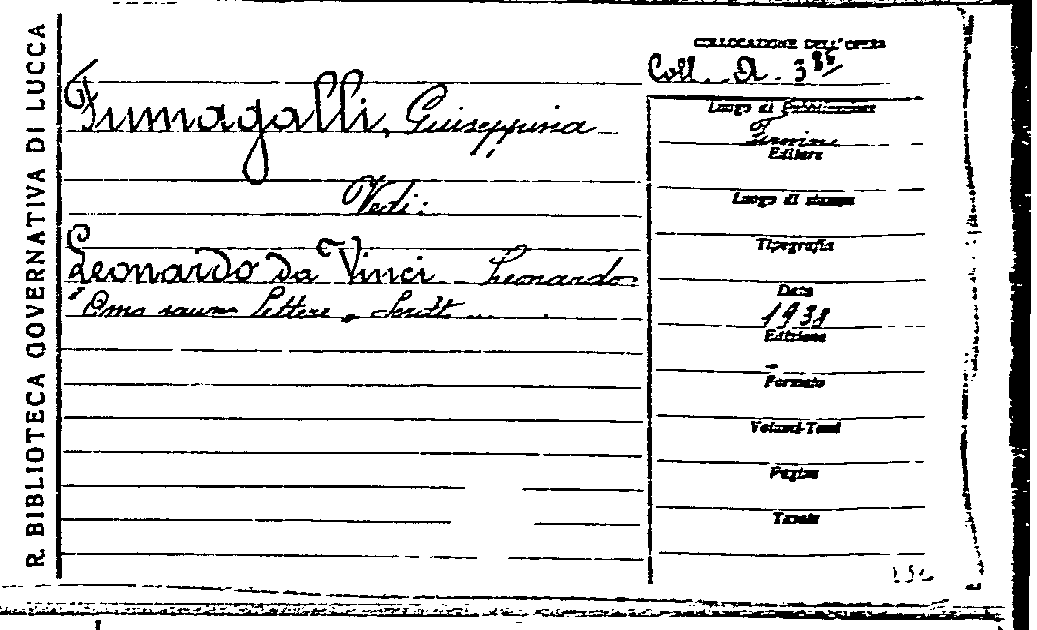 R. BIBLIOTECA GOVERNATIVA DI LUCCA
COLLOCAZIONE DELL'OPERA
Coll. A. 385
Fumagalli, Giuseppina
Vedi:
Leonardo da Vinci Leonardo
"Omo lettere
Luogo di Pubblicazione
Editore
Luogo di stampa
Tipografia
Data
1938
Edizione
Formato
Volumi-Tomi
Pagine
Tavole